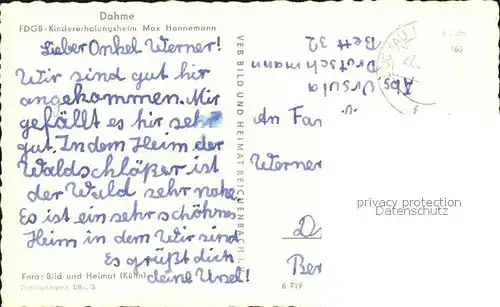 Dahme
FDGB-Kindererholungsheim Max Hannemann
Lieber Onkel Werner!
Wir sind gut hir
angekommen. Mir
gefällt es hir sehr
gut. In dem Heim der
Waldschlößer ist
der Wald sehr nahe.
Es ist ein sehr schönes
Heim in dem Wir sind
Es grüßt dich
deine Ursel!
Foto: Bild und Heimat (Kühn)
VEB BILD UND HEIMAT REICHENBACH
Abs. Ursula
Bett 32
An Fam
Werner
D
Ber
6 919
privacy protection
Datenschutz